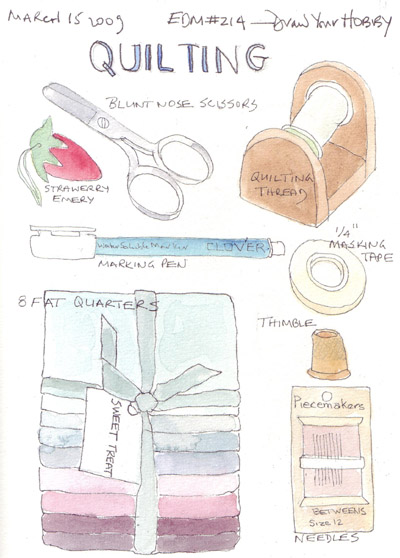 MARCH 15 2009 EDM#214 — DRAW YOUR HOBBY
QUILTING
BLUNT NOSE SCISSORS
STRAWERRY
EMERY
QUILTING
THREAD
Water Soluble Marker CLOVER
MARKING PEN
1/4"
MASKING
TAPE
8 FAT QUARTERS
SWEET TREAT
THIMBLE
Piecemakers
BETWEENS
Size 12
NEEDLES